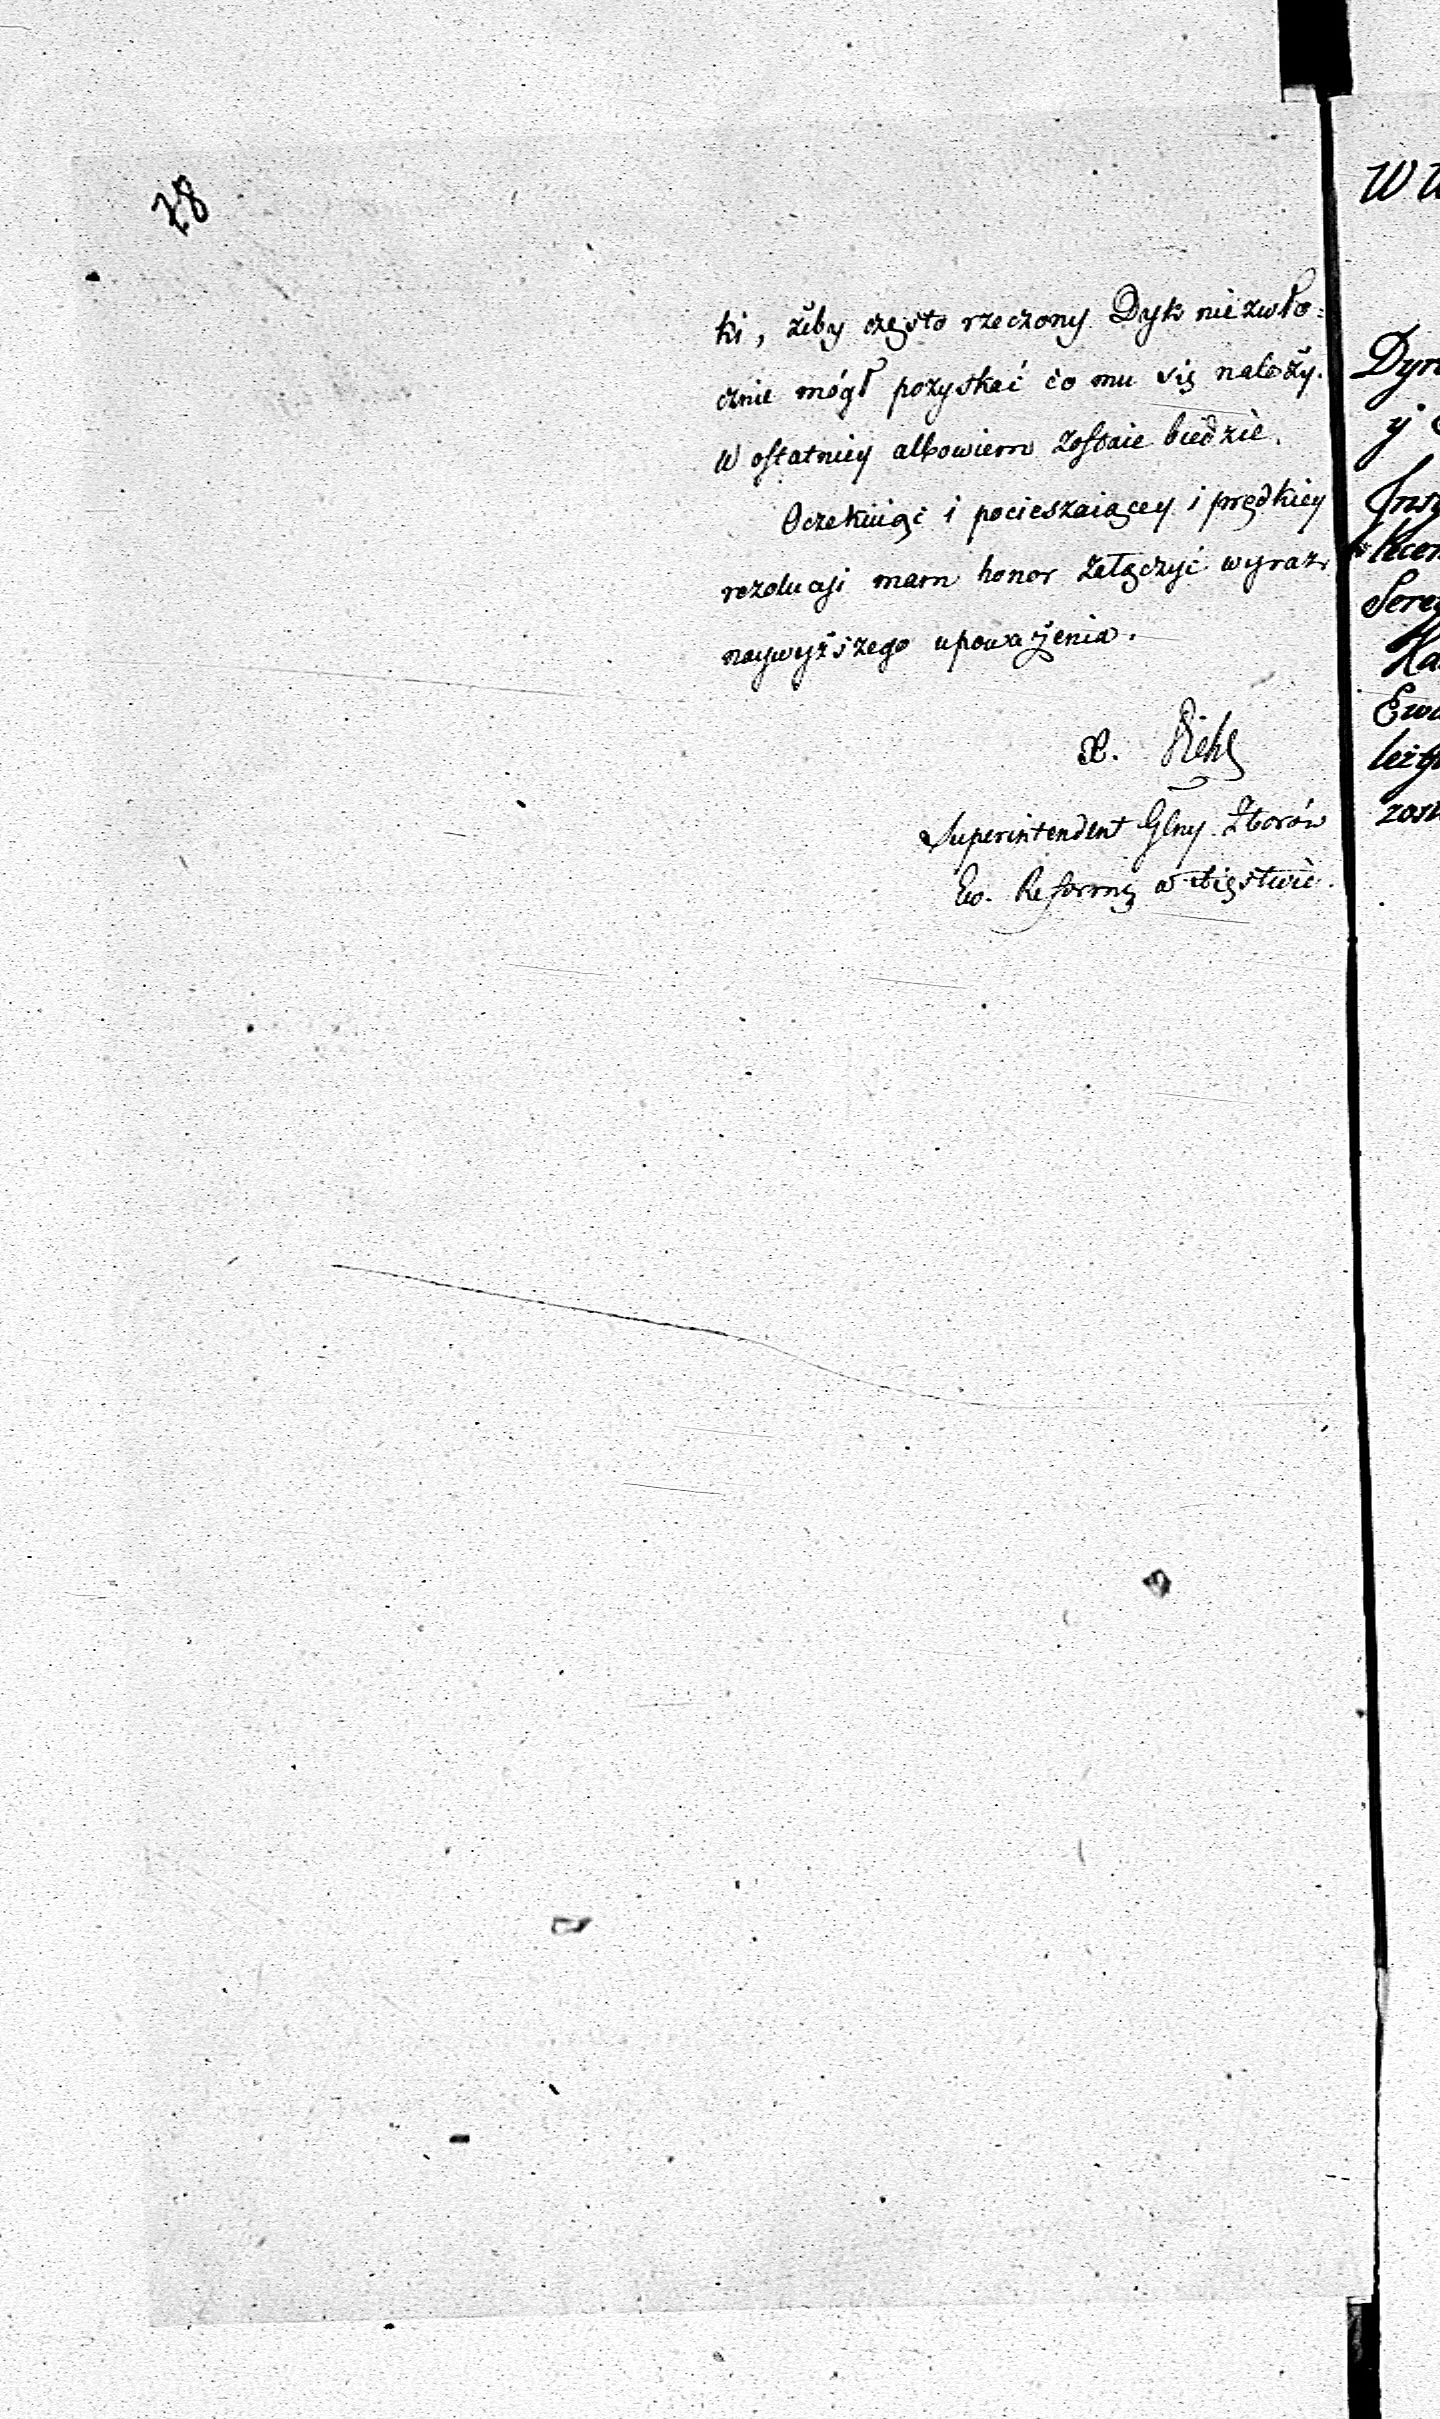 28
ki, żeby często rzeczony Dyk niezwło=
cznie mógł pozyskać co mu się należy.
W ostatniey albowiem zostaie biedzie.
Oczekuiąc i pocieszaiącey i prędkiey
rezolucyi mam honor załączyć wyraz
naywyższego upoważenia.
X. Diehl
Superintendent Glny Zborów
Ew. Reform w Xięstwie.
W W
Dyre
y